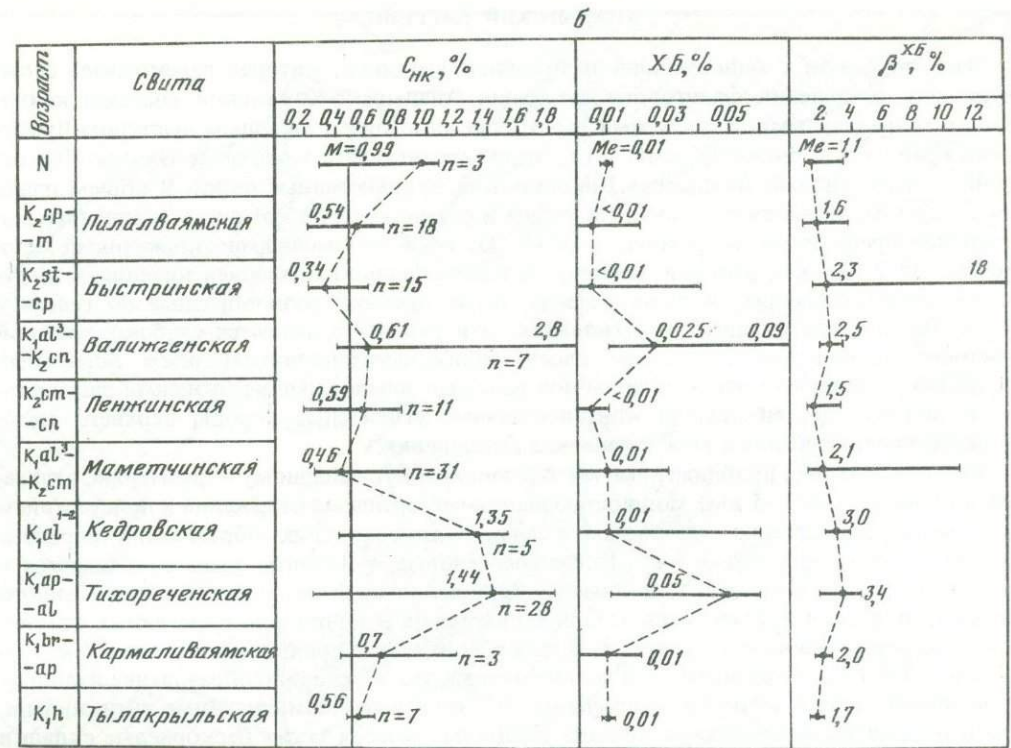 б
Возраст Свита Cнк, % ХБ, % β^ХБ, %
0,2 0,4 0,6 0,8 1,0 1,2 1,4 1,6 1,8 0,01 0,03 0,05 2 4 6 8 10 12
N M=0,99 n=3 Me=0,01 Me=1,1
K₂cp– –m Пилалваямская 0,54 n=18 <0,01 1,6
K₂st– –cp Быстринская 0,34 n=15 <0,01 2,3 18
K₁al³– –K₂cn Валижгенская 0,61 2,8 n=7 0,025 0,09 2,5
K₂cm– –cn Пенжинская 0,59 n=11 <0,01 1,5
K₁al³– –K₂cm Маметчинская 0,46 n=31 0,01 2,1
K₁al¹⁻² Кедровская 1,35 n=5 0,01 3,0
K₁ap– –al Тихореченская 1,44 n=28 0,05 3,4
K₁br– –ap Кармаливаямская 0,7 n=3 0,01 2,0
K₁h Тылакрыльская 0,56 n=7 0,01 1,7